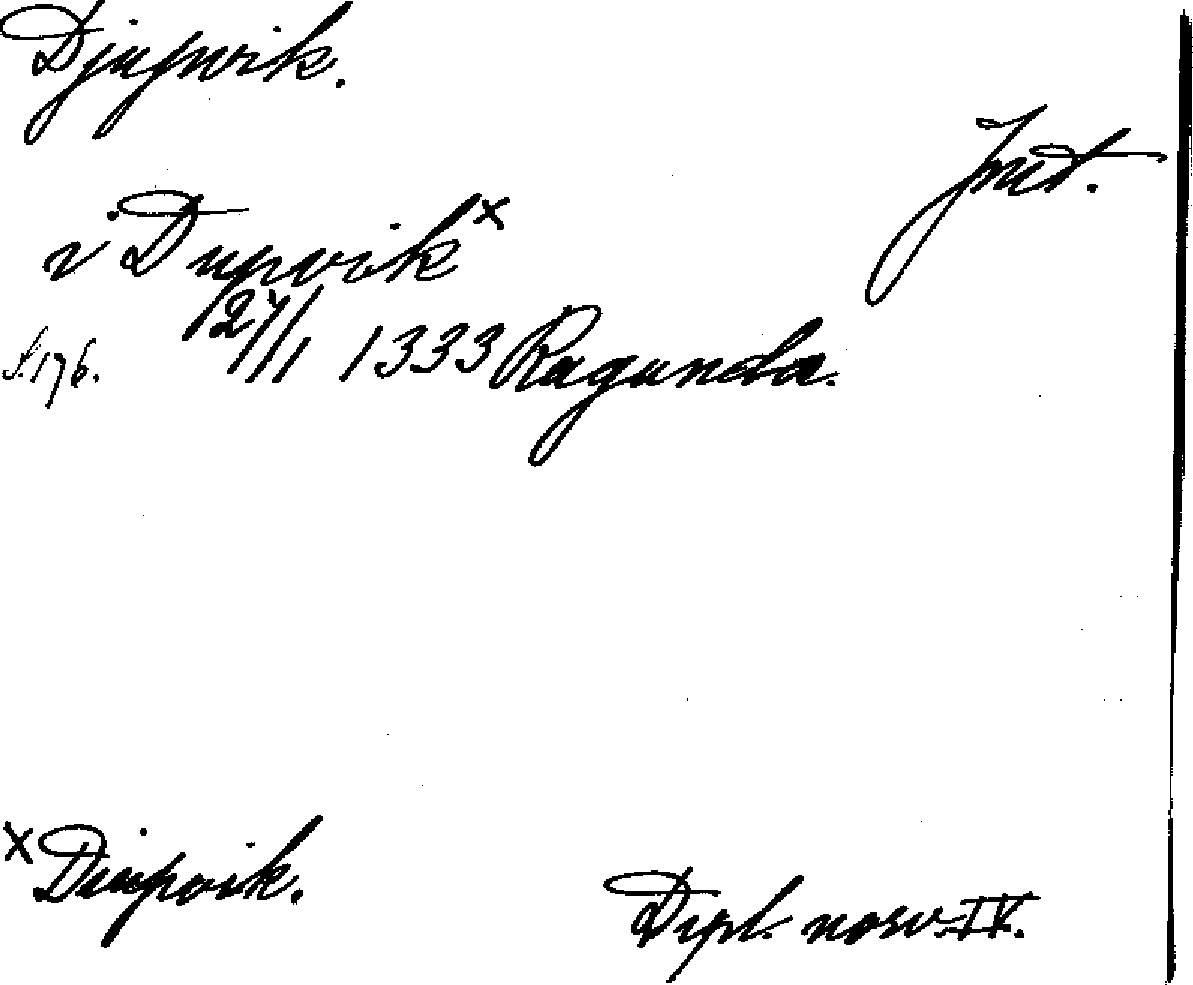 Djupvik.
Jmt.
i Dupvik x
S. 176. 27/1 1333 Ragunda.
x Diupvik.
Dipl. norv. IV.